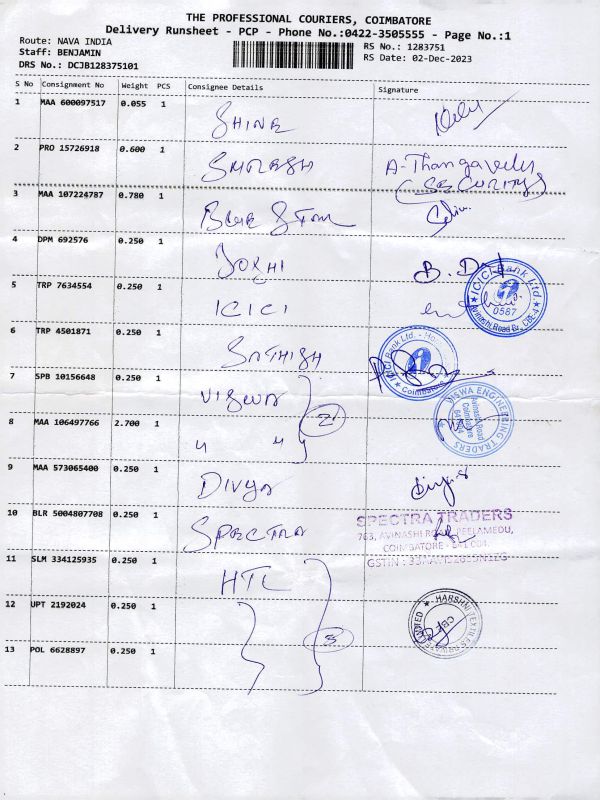 THE PROFESSIONAL COURIERS, COIMBATORE
Delivery Runsheet - PCP - Phone No.:0422-3505555 - Page No.:1
Route: NAVA INDIA
RS No.: 1283751
Staff: BENJAMIN
RS Date: 02-Dec-2023
DRS No.: DCJB128375101
S No Consignment No Weight PCS Consignee Details Signature
1 MAA 600097517 0.055 1 SHINE
2 PRO 15726918 0.600 1 SURESH A-Thangavelu
(SECURITY)
3 MAA 107224787 0.780 1 BLUE STAR Selvi
4 DPM 692576 0.250 1 JOSHI B. Dev
5 TRP 7634554 0.250 1 ICICI
ICICI Bank Ltd. 0587 Avinashi Road Br., CBE-4
6 TRP 4501871 0.250 1 SATHISH
ICICI Bank Ltd. Coimbatore
7 SPB 10156648 0.250 1 VISWA 2
VISWA ENGINEERING TRADERS Avinashi Road Coimbatore
8 MAA 106497766 2.700 1 " "
9 MAA 573065400 0.250 1 DIVYA Divya
10 BLR 5004807708 0.250 1 SPECTRA
SPECTRA TRADERS
763, AVINASHI ROAD, PEELAMEDU,
COIMBATORE - 641 004.
GSTIN :
11 SLM 334125935 0.250 1 HTL 3
12 UPT 2192024 0.250 1
HARSHNI TEXTILES PRIVATE LIMITED CBE
13 POL 6628897 0.250 1